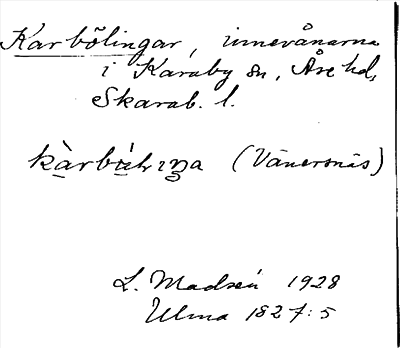 Karbölingar, innevånarna
i Karaby sn, Åse hd,
Skarab. l.
(Vänersnäs)
L. Madsén 1928
Ulma 1827:5